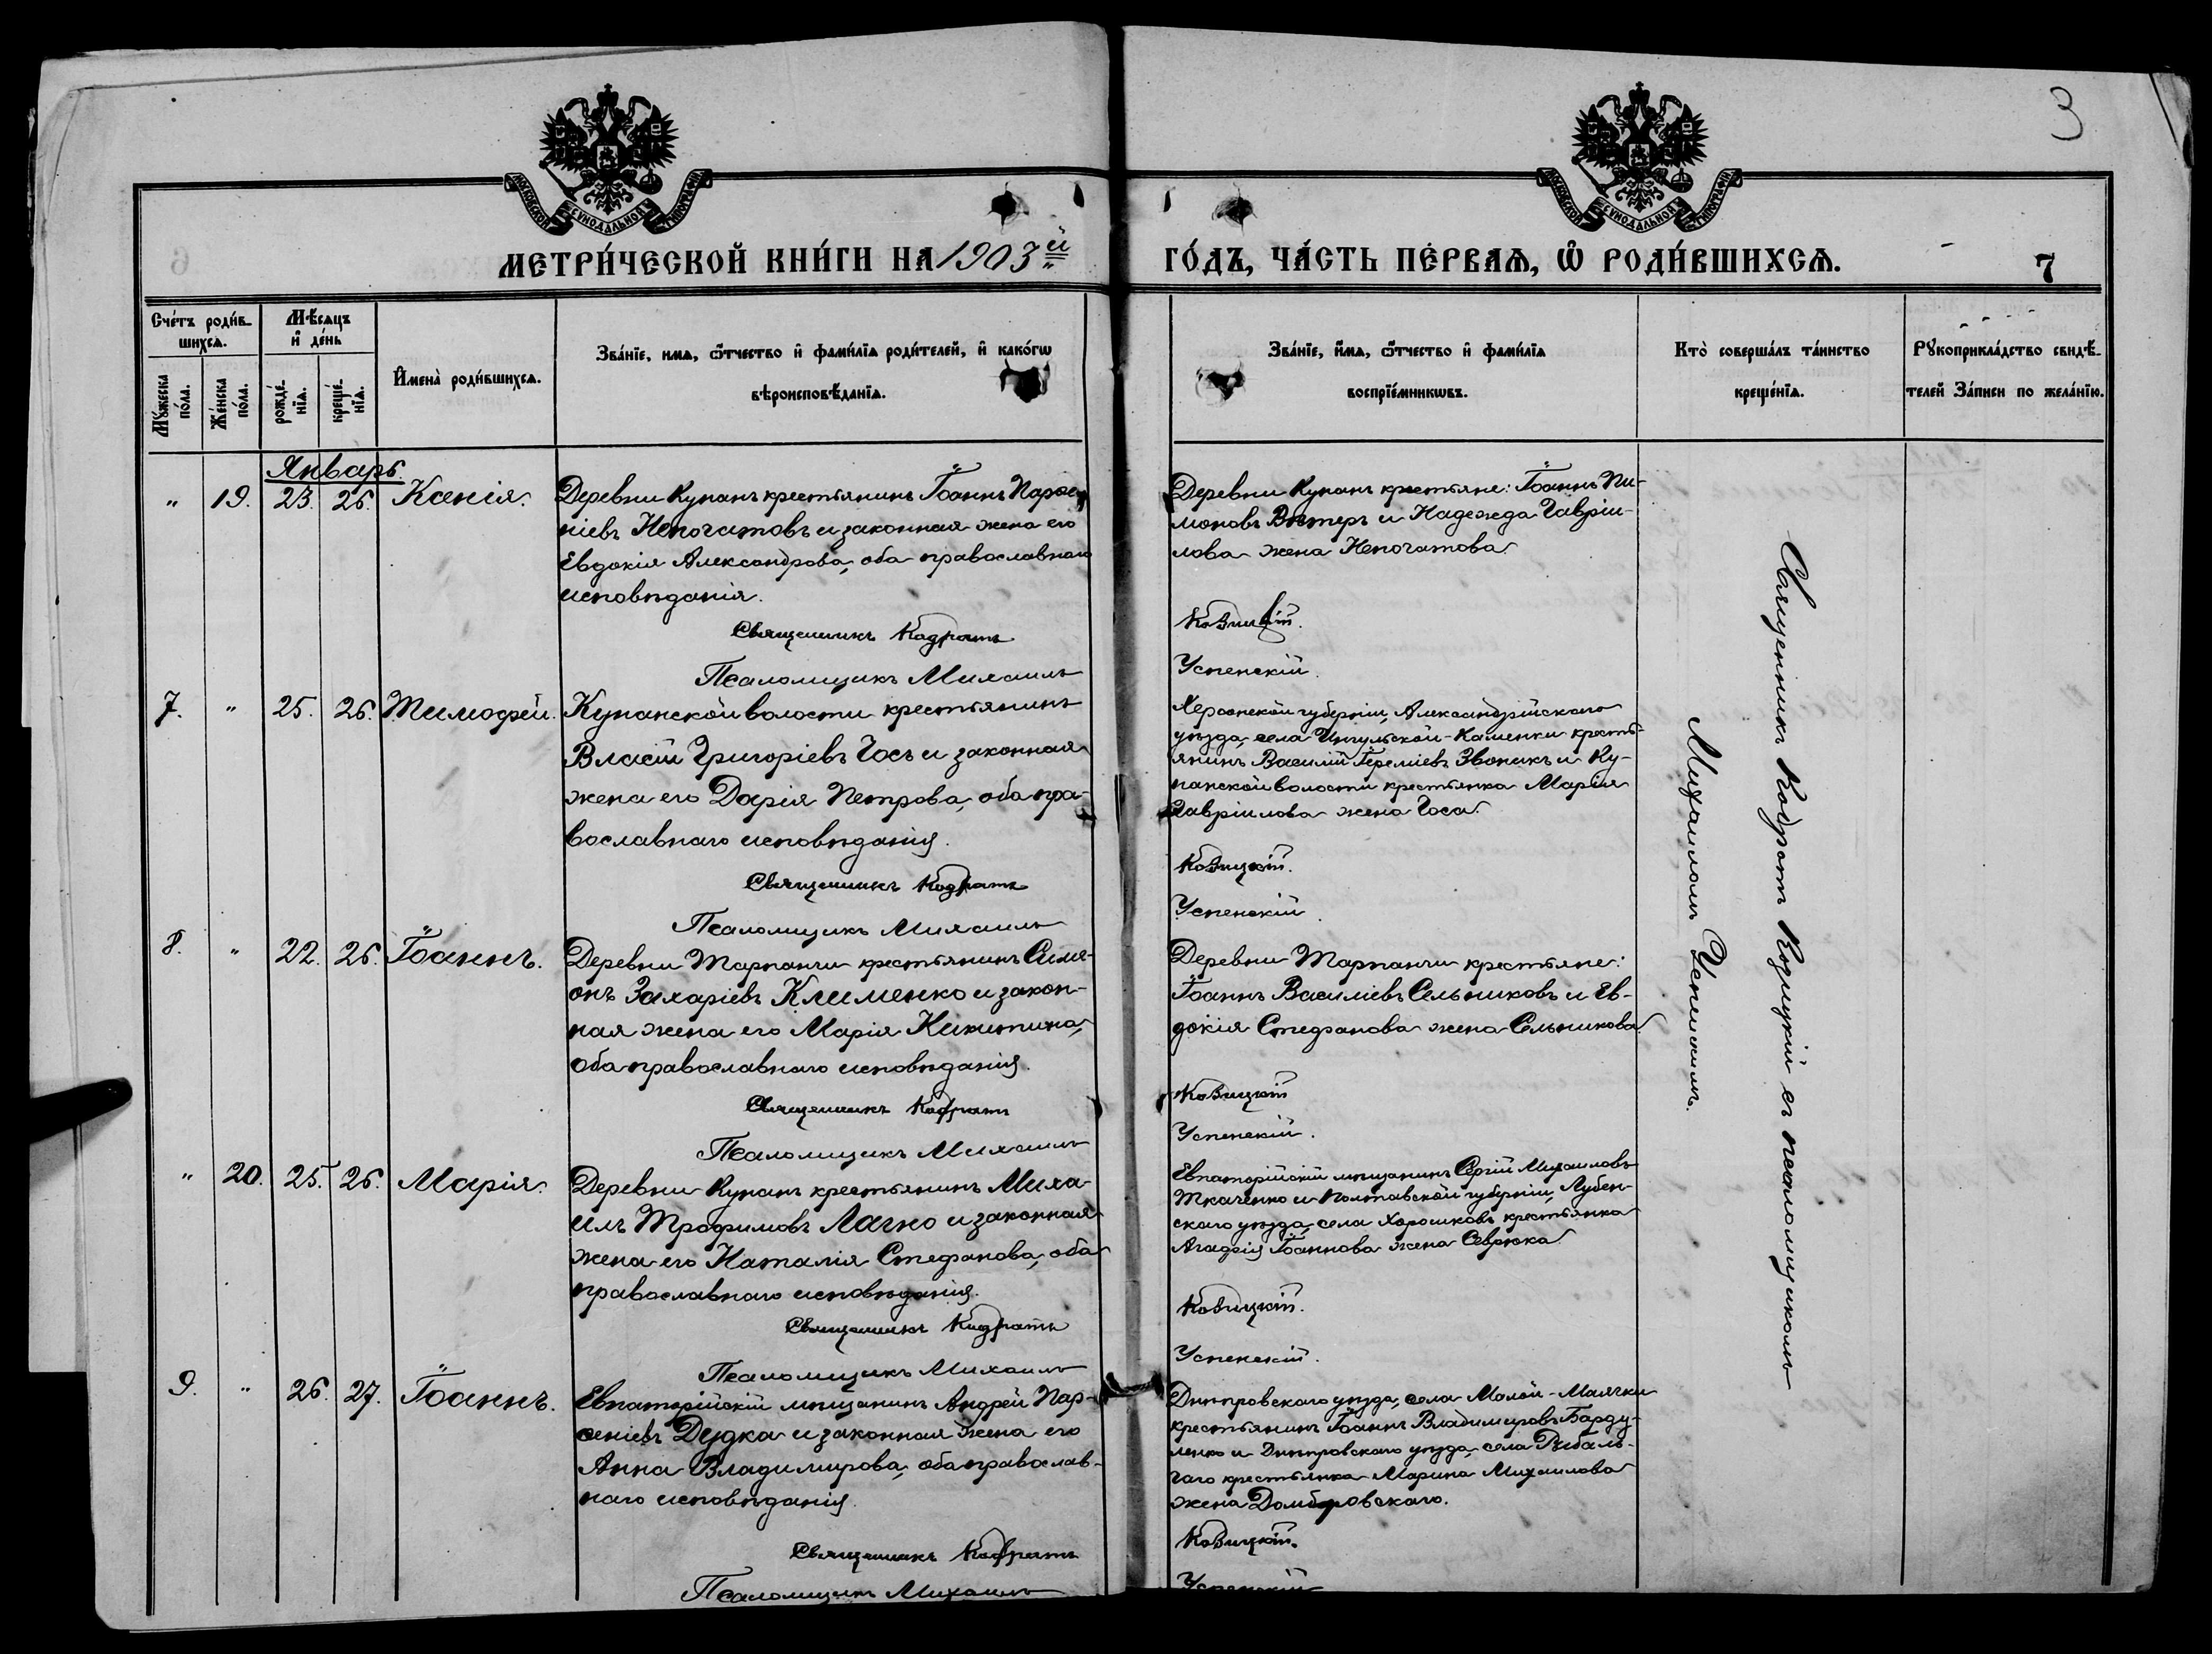 3
МОСКОВСКОЙ СѴНОДАЛЬНОЙ ТИПОГРАФІИ
МОСКОВСКОЙ СѴНОДАЛЬНОЙ ТИПОГРАФІИ
МЕТРИ́ЧЕСКОЙ КНИ́ГИ НА 1903й
ГО́ДЪ, ЧА́СТЬ ПЕ́РВАѦ, Ѡ РОДИ́ВШИХСѦ.
7
Сче́тъ роди́в-
шихсѧ.
Мꙋ́жеска по́ла.
Же́нска по́ла.
Мѣ́сѧцъ
и҆ де́нь
рожде́-
нїѧ.
креще́-
нїѧ.
И҆мена̀ роди́вшихсѧ.
Зва́нїе, имѧ, ѻ҆́тчество и҆ фами́лїѧ роди́телей, и҆ како́гѡ
вѣроисповѣ́данїѧ.
Зва́нїе, и҆́мѧ, ѻ҆́тчество и҆ фами́лїѧ
воспрїе́мникѡвъ.
Кто̀ соверша́лъ та́инство
креще́нїѧ.
Рꙋкоприкла́дство свидѣ́-
телей За́писи по жела́нїю.
Январь.
" 19. 23. 26. Ксенія.
Деревни Кунанъ крестьянинъ Іоаннъ Парѳе-
ніевъ Непочатовъ и законная жена его
Евдокія Александрова, оба православнаго
исповѣданія.
Священникъ Кодратъ
Псаломщикъ Михаилъ
Деревни Кунанъ крестьяне: Іоаннъ Пи-
моновъ Вѣтеръ и Надежда Гавріи-
лова жена Непочатова.
Козицкій.
Успенскій.
7. " 25. 26. Тимоѳей.
Кунанской волости крестьянинъ
Власій Григоріевъ Госъ и законная
жена его Дарія Петрова, оба пра-
вославнаго исповѣданія.
Священникъ Кодратъ
Псаломщикъ Михаилъ
Херсонской губерніи, Александрійскаго
уѣзда, села Ингульской-Каменки кресть-
янинъ Василій Іереміевъ Звоникъ и Ку-
нанской волости крестьянка Марія
Гавріилова жена Госа.
Козицкій.
Успенскій.
8. " 22. 26. Іоаннъ.
Деревни Тарпанчи крестьянинъ Симе-
онъ Захаріевъ Клименко и закон-
ная жена его Марія Никитина,
оба православнаго исповѣданія.
Священникъ Кодратъ
Псаломщикъ Михаилъ
Деревни Тарпанчи крестьяне:
Іоаннъ Василіевъ Сельниковъ и Ев-
докія Стефанова жена Сельникова.
Козицкій
Успенскій.
" 20. 25. 26. Марія.
Деревни Кунанъ крестьянинъ Миха-
илъ Трофимовъ Лачно и законная
жена его Наталія Стефанова, оба
православнаго исповѣданія.
Священникъ Кодратъ
Псаломщикъ Михаилъ
Евпаторійскій мѣщанинъ Сергій Михаиловъ
Ткаченко и Полтавской губерніи, Лубен-
скаго уѣзда, села Хорошковъ крестьянка
Агаѳія Іоаннова жена Севрюка.
Козицкій.
Успенскій.
9. " 26. 27. Іоаннъ.
Евпаторійскій мѣщанинъ Андрей Пар-
ѳеніевъ Дудка и законная жена его
Анна Владимирова, оба православ-
наго исповѣданія.
Священникъ Кодратъ
Псаломщикъ Михаилъ
Днѣпровскаго уѣзда, села Малой-Маячки
крестьянинъ Іоаннъ Владимировъ Барду-
ленко и Днѣпровскаго уѣзда, села Рыбаль-
чаго крестьянка Марина Михаилова
жена Домбровскаго.
Козицкій.
Успенскій
Священникъ Кодратъ Козицкій съ псаломщикомъ
Михаиломъ Успенскимъ.